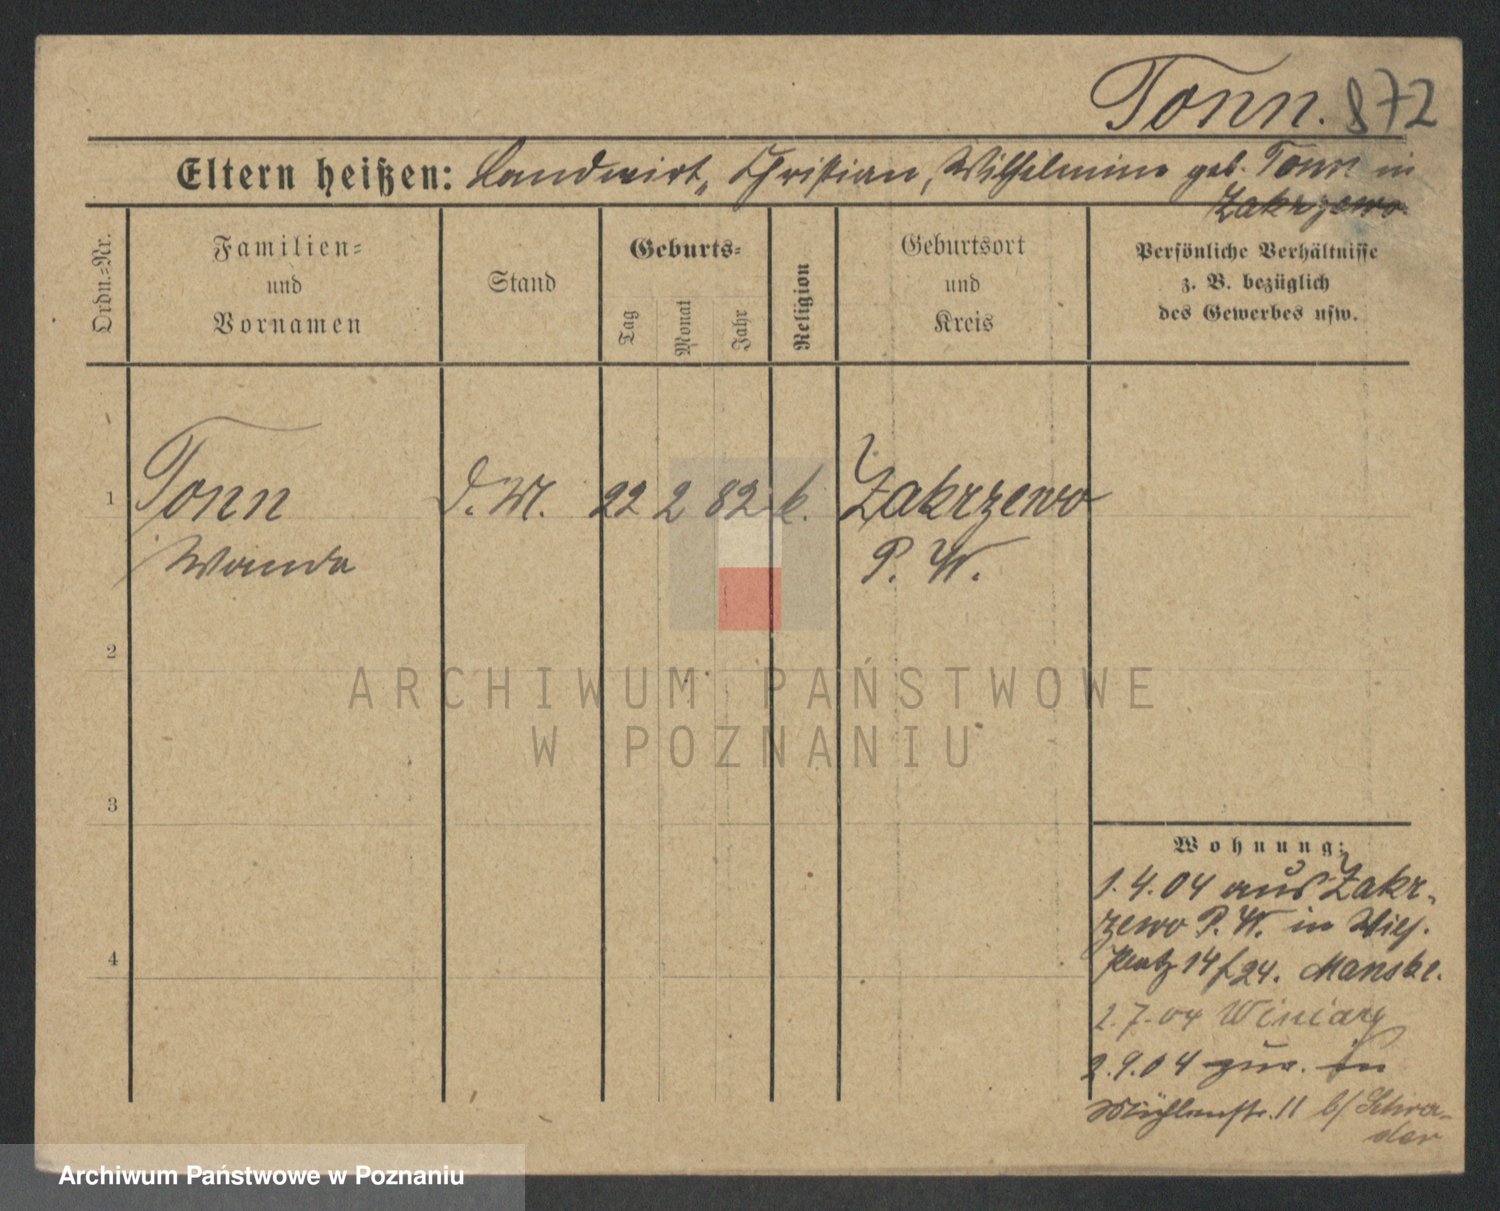 Tonn. 872
Eltern heißen: Landwirt, Christian, Wilhelmine geb. Tonn in
Zakrzewo.
Ordn.=Nr.
Familien=
und
Vornamen
Stand
Geburts=
Tag
Monat
Jahr
Religion
Geburtsort
und
Kreis
Persönliche Verhältnisse
z. B. bezüglich
des Gewerbes usw.
1 Tonn D. M. 22 2 82 k. Zakrzewo
Wanda P. W.
2
3
4
Wohnung:
1.4.04 aus Zakr-
zewo P. W. in Wilh.
Platz 14 24. Manske.
2.7.04 Winiary
2.9.04 zur. in
Mühlenstr. 11 b/ Schra-
der
ARCHIWUM PAŃSTWOWE
W POZNANIU
Archiwum Państwowe w Poznaniu